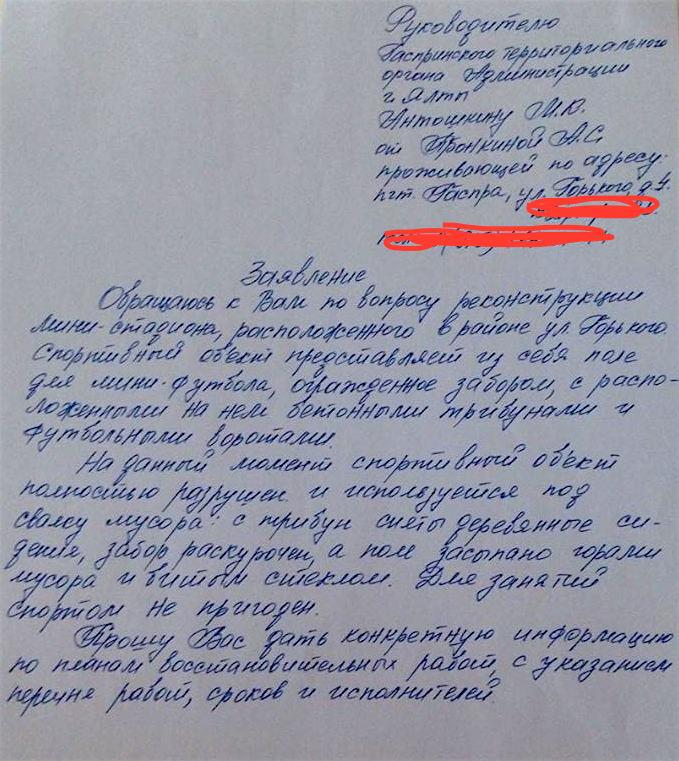 Руководителю
Гаспринского территориального
органа Администрации
г. Ялты
Антошкину М.В.
от Пронкиной А.С.
проживающей по адресу:
пгт. Гаспра, ул. Горького, д.
Заявление
Обращаюсь к Вам по вопросу реконструкции
мини-стадиона, расположенного в районе ул. Горького.
Спортивный обект представляет из себя поле
для мини-футбола, огражденное забором, с распо-
ложенными на нем бетонными трибунами и
футбольными воротами.
На данный момент спортивный обект
полностью разрушен и используется под
свалку мусора: с трибун сняты деревянные си-
дения, забор раскурочен, а поле засыпано горами
мусора и битым стеклом. Для занятий
спортом не пригоден.
Прошу Вас дать конкретную информацию
по планам восстановительных работ, с указанием
перечня работ, сроков и исполнителей.